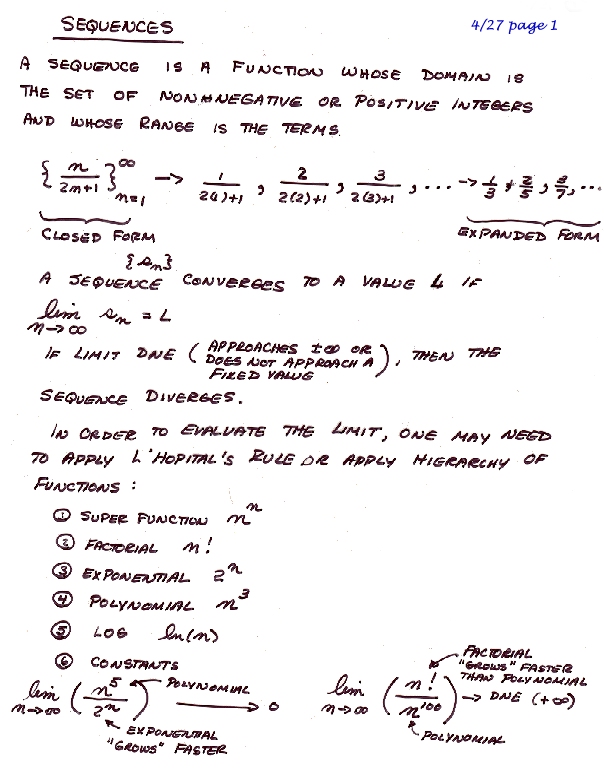 SEQUENCES
4/27 page 1
A SEQUENCE IS A FUNCTION WHOSE DOMAIN IS
THE SET OF NONNEGATIVE OR POSITIVE INTEGERS
AND WHOSE RANGE IS THE TERMS.
{n/(2n+1)}_{n=1}^∞ → 1/(2(1)+1), 2/(2(2)+1), 3/(2(3)+1), ... → 1/3, 2/5, 3/7, ...
CLOSED FORM EXPANDED FORM
{s_n}
A SEQUENCE CONVERGES TO A VALUE L IF
lim_{n→∞} s_n = L
IF LIMIT DNE (APPROACHES ±∞ OR
DOES NOT APPROACH A
FIXED VALUE), THEN THE
SEQUENCE DIVERGES.
IN ORDER TO EVALUATE THE LIMIT, ONE MAY NEED
TO APPLY L'HOPITAL'S RULE OR APPLY HIERARCHY OF
FUNCTIONS:
① SUPER FUNCTION n^n
② FACTORIAL n!
③ EXPONENTIAL 2^n
④ POLYNOMIAL n^3
⑤ LOG ln(n)
⑥ CONSTANTS
lim_{n→∞} (n^5/2^n) → 0
POLYNOMIAL
EXPONENTIAL
"GROWS" FASTER
FACTORIAL
"GROWS" FASTER
THAN POLYNOMIAL
lim_{n→∞} (n!/n^100) → DNE (+∞)
POLYNOMIAL